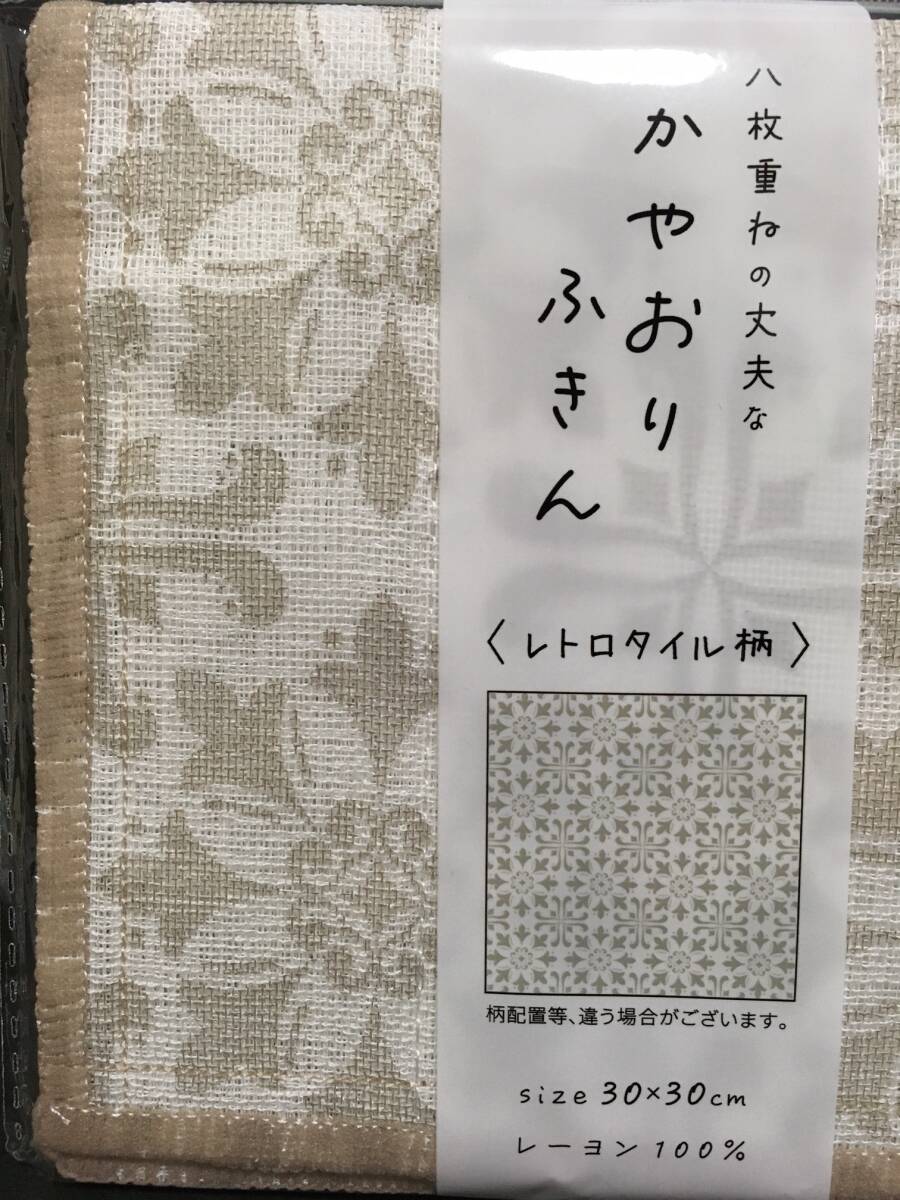 八枚重ねの丈夫な
かやおり
ふきん
〈レトロタイル柄〉
柄配置等、違う場合がございます。
size 30×30cm
レーヨン100%